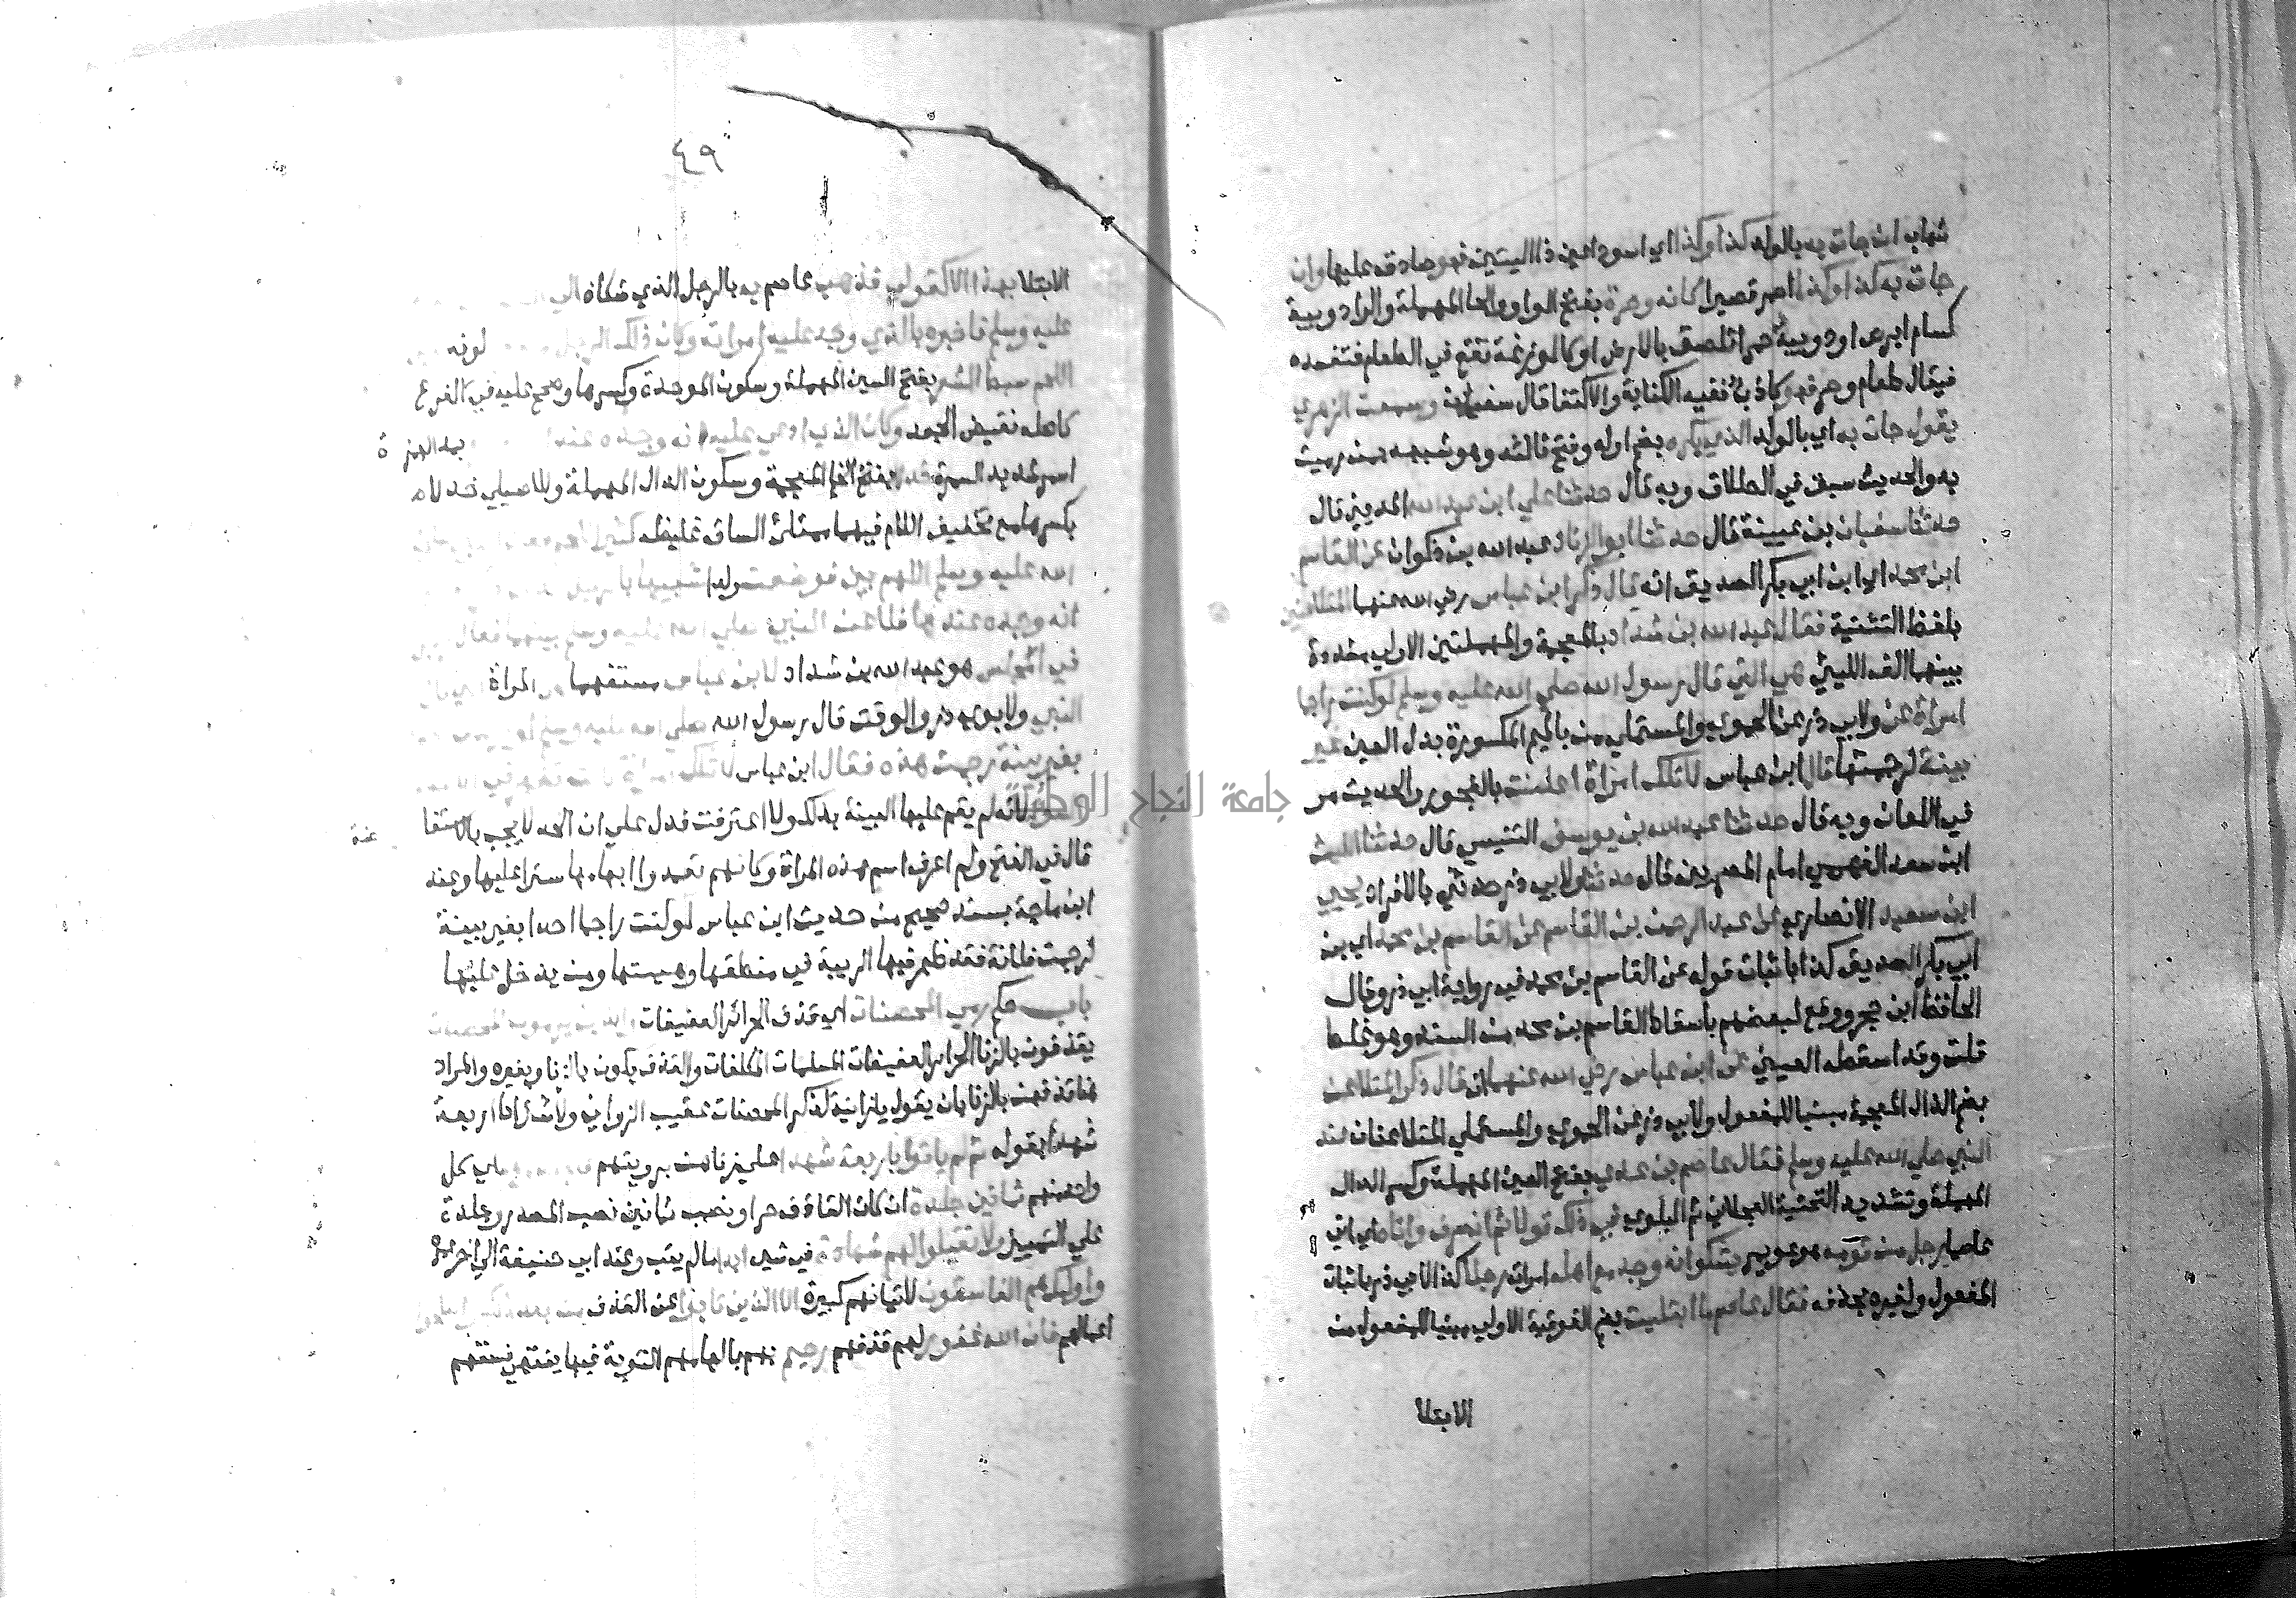 شهاب ان جات به بالولد كذا وكذا اي اسود اعين ذا اليتين فهو صادق عليها وان
جات به كذا وكذا احمر قصيرا كانه وحرة بفتح الواو والحا المهملة والرا دويبة
كسام ابرص او دويبة حمرا تلصق بالارض او كالوزغة تقع في الطعام فتفسده
فيقال طعام وحر فهو كاذب ففيه الكناية والاكتفا قال سفيان وسمعت الزهري
يقول جات به اي بالولد الذي يكره بضم اوله وفتح ثالثه وهو شبهه بمن رميت
به والحديث سبق في الطلاق وبه قال حدثنا علي ابن عبد الله المديني قال
حدثنا سفيان بن عيينة قال حدثنا ابو الزناد عبد الله بن ذكوان عن القاسم
ابن محمد اي ابن ابي بكر الصديق انه قال ذكر ابن عباس رضي الله عنهما المتلاعنين
بلفظ التثنية فقال عبد الله بن شداد بالمعجمة والمهملتين الاولى مشددة
بينهما الف الليثي هي التي قال رسول الله صلي الله عليه وسلم لو كنت راجما
امراة عن ولابي ذر عن الحموي والمستملي من بالميم المكسورة بدل العين غير
بينة لرجمتها قال ابن عباس لا تلك امراة اعلنت بالفجور والحديث مر
في اللعان وبه قال حدثنا عبد الله بن يوسف التنيسي قال حدثنا الليث
ابن سعد الفهمي امام المصريين قال حدثنا ولابي ذر حدثني بالافراد يحيي
ابن سعيد الانصاري عن عبد الرحمن بن القاسم عن القاسم بن محمد اي بن
ابي بكر الصديق كذا باثبات قوله عن القاسم بن محمد في رواية ابي ذر وقال
الحافظ ابن حجر ووقع لبعضهم باسقاط القاسم بن محمد من السند وهو غلط
قلت وقد اسقطه العيني عن ابن عباس رضي الله عنهما انه قال ذكر المتلاعن
بضم الذال المعجمة مبنيا للمفعول ولابي ذر عن الحموي والمستملي المتلاعنان عند
النبي صلي الله عليه وسلم فقال عاصم بن عدي بفتح العين المهملة وكسر الدال
المهملة وتشديد التحتية العجلاني ثم البلوي في ذلك قولا ثم انصرف واتاه اي اتي
عاصما رجل من قومه هو عويمر يشكو انه وجد مع اهله امراته رجلا كذا لابي ذر باثبات
المفعول ولغيره بحذفه فقال عاصم ما ابتليت بضم الفوقية الاولى مبنيا للمفعول من
الابتلا
٤٩
الابتلا بهذا الا لقولي فذهب عاصم به بالرجل الذي شكاه الي
عليه وسلم فاخبره بالذي وجد عليه امراته وكان ذلك الرجل لونه
اللحم سبط الشعر بفتح السين المهملة وسكون الموحدة وكسرها وصحح عليه في الفرع
كاصله نقيض الجعد وكان الذي ادعي عليه انه وجده عند بمد الهمزة
اسمر شديد السمرة خدلا بفتح الخا المعجمة وسكون الدال المهملة وللاصيلي خدلا
بكسرها مع تخفيف اللام فيهما ممتلئ الساق غليظه كثير
الله عليه وسلم اللهم بين فوضعت ولدا شبيها با
انه وجده عندها فلاعن النبي صلي الله عليه وسلم بينهما فقال
في المجلس هو عبد الله بن شداد لابن عباس مستفهما المراة
النبي ولابوي ذر والوقت قال رسول الله صلي الله عليه وسلم
بغير بينة رجمت هذه فقال ابن عباس لا تلك
لانه لم يقم عليها البينة بذلك ولا اعترفت فدل علي ان الحد لا يجب بالاستفا
ضة
قال في الفتح ولم اعرف اسم هذه المراة وكانهم تعمدوا ابهامها سترا عليها وعند
ابن ماجة بسند صحيح من حديث ابن عباس لو كنت راجما احدا بغير بينة
لرجمت فلانة فقد ظهر فيها الريبة في منطقها وهيئتها ومن يدخل عليها
باب حكم رمي المحصنات اي قذف الحرائر العفيفات والذين يرمون المحصنات
يقذفون بالزنا الحراير العفيفات المسلمات المكلفات والقذف يكون بالزنا وبغيره والمراد
هنا قذفهن بالزنا بان يقول يا زانية لذكر المحصنات عقيب الزواني ولاشتراط اربعة
شهدا بقوله ثم لم ياتوا باربعة شهدا علي زناهن برويتهم كل
واحد منهم ثمانين جلدة ان كان القاذف حرا ونصب ثمانين نصب المصدر وجلدة
علي التمييز ولا تقبلوا لهم شهادة في شي ابدا ما لم يتب وعند ابي حنيفة الي اخر عمره
واوليك هم الفاسقون لاتيانهم كبيرة الا الذين تابوا عن القذف من بعد ذلك واصلحوا
اعمالهم فان الله غفور لهم قذفهم رحيم بهم بالهامهم التوبة فيها ينتهي فسقهم
جامعة النجاح الوطنية